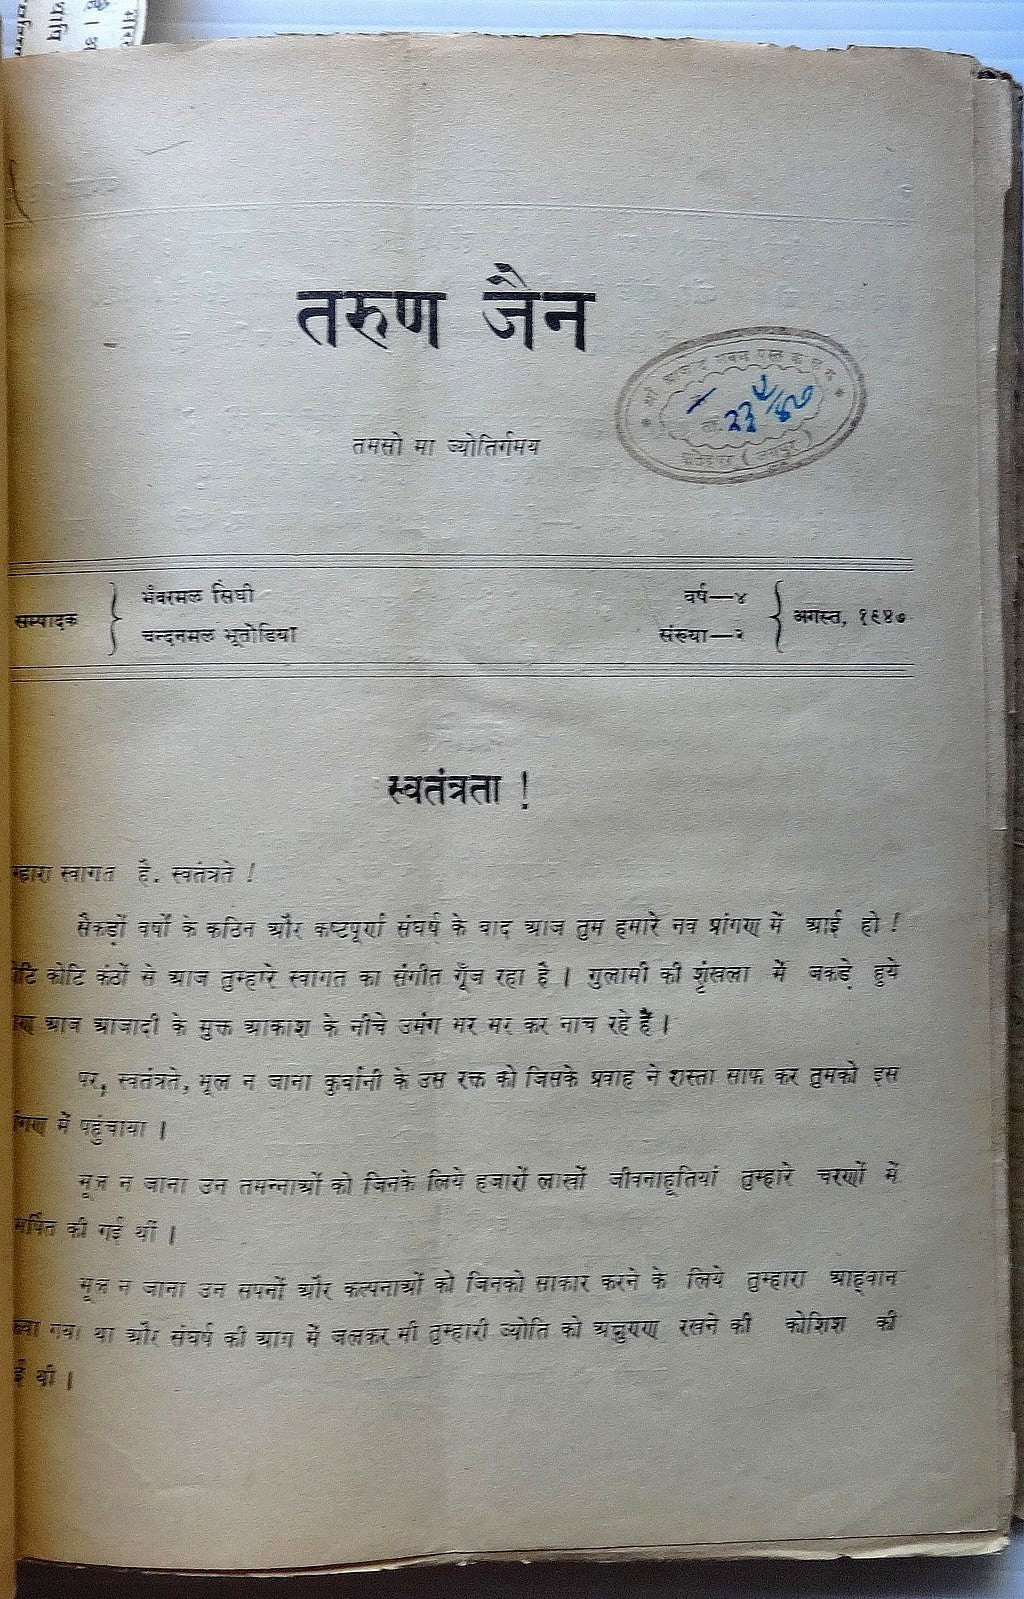 तरुण जैन
तमसो मा ज्योतिर्गमय
सम्पादक
भँवरमल सिंघी
चन्दनमल भूतोडिया
वर्ष—४
संख्या—२
अगस्त, १९४७
स्वतंत्रता !
स्वागत है. स्वतंत्रते !
सैकड़ों वर्षों के कठिन और कष्टपूर्ण संघर्ष के वाद आज तुम हमारे नव प्रांगण में आई हो !
कोटि कंठों से आज तुम्हारे स्वागत का संगीत गूँज रहा है । गुलामी की शृंखला में जकड़े हुये
आज आजादी के मुक्त आकाश के नीचे उमंग भर भर कर नाच रहे हैं ।
पर, स्वतंत्रते, भूल न जाना कुर्वानी के उस रक्त को जिसके प्रवाह ने रास्ता साफ कर तुमको इस
में पहुंचाया ।
भूल न जाना उन तमन्नाओं को जिनके लिये हजारों लाखों जीवनाहूतियां तुम्हारे चरणों में
की गई थीं ।
भूल न जाना उन सपनों और कल्पनाओं को जिनको साकार करने के लिये तुम्हारा आह्वान
गया था और संघर्ष की आग में जलकर भी तुम्हारी ज्योति को अक्षुण्ण रखने की कोशिश की
थी ।